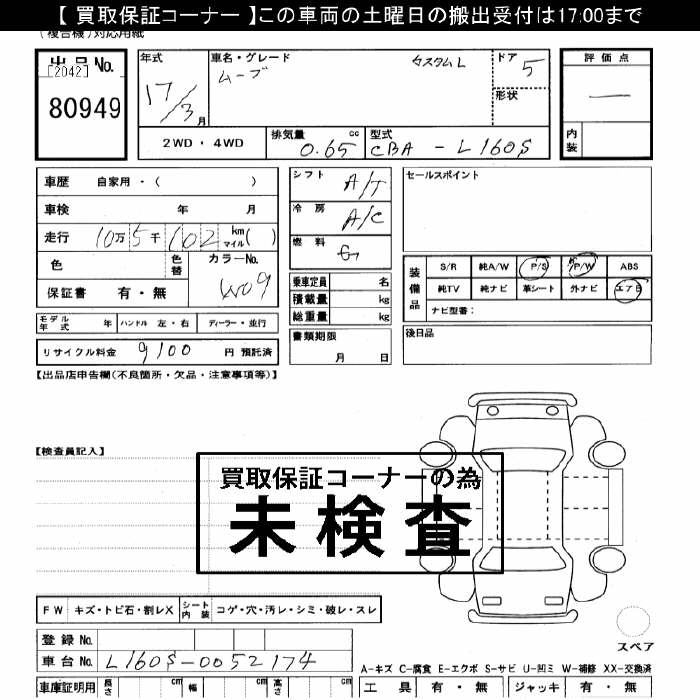 【 買取保証コーナー 】この車両の土曜日の搬出受付は17:00まで
(複合機)対応用紙
出品No.
[2042]
80949
年式
17/3月
車名・グレード
ムーブ カスタムL
ドア
5
形状
評価点
—
内装
2WD・4WD
排気量 0.65 cc
型式 CBA - L160S
車歴 自家用・( )
車検 年 月
走行 10万5千102 km マイル( )
色 色替 カラーNo.
W09
保証書 有・無
シフト A/T
冷房 A/C
燃料 G
乗車定員 名
積載量 kg
総重量 kg
セールスポイント
装備品
S/R 純A/W P/S P/W ABS
純TV 純ナビ 革シート 外ナビ エアB
ナビ型番:
モデル年式 年 ハンドル 左・右 ディーラー・並行
書類期限
月 日
後日品
リサイクル料金 9100 円 預託済
【出品店申告欄(不良箇所・欠品・注意事項等)】
【検査員記入】
買取保証コーナーの為
未検査
FW キズ・トビ石・割レX シート内装 コゲ・穴・汚レ・シミ・破レ・スレ
登録No.
車台No. L160S-0052174
スペア
A-キズ C-腐食 E-エクボ S-サビ U-凹ミ W-補修 XX-交換済
車庫証明用 長さ cm 幅 cm 高さ cm
工具 有・無 ジャッキ 有・無